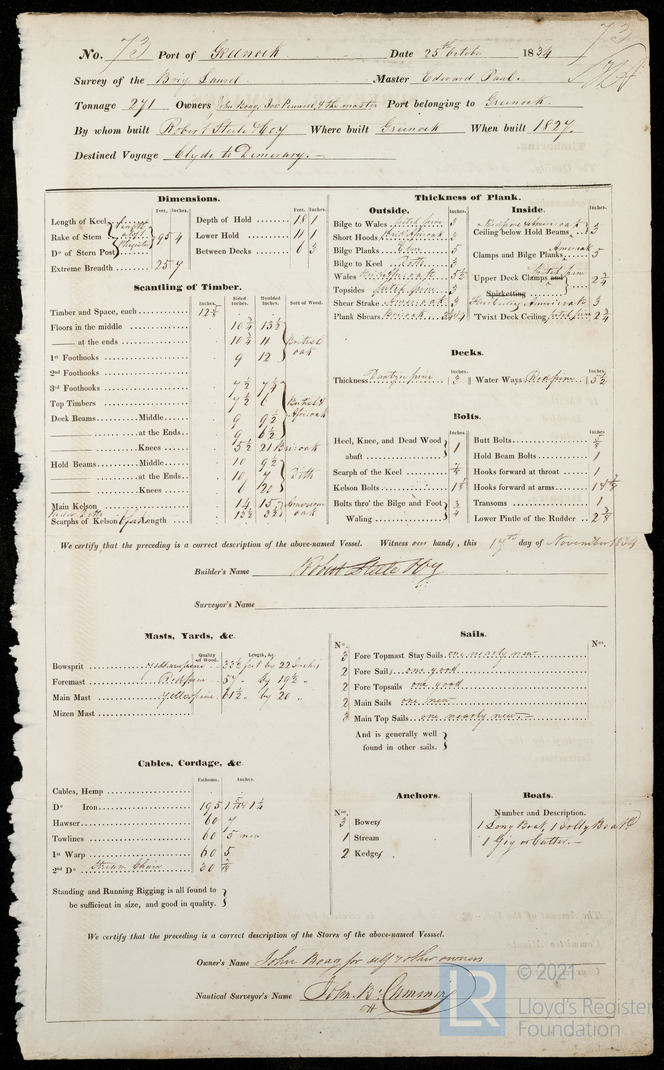 No. 73 Port of Greenock Date 25th October 1834
73
Survey of the Brig Laurel Master Edward Paul.
Tonnage 271 Owners John Boag, & the master Port belonging to Greenock.
By whom built Robert Steele & Coy Where built Greenock When built 1827.
Destined Voyage Clyde to Demerary.
Dimensions.
Feet. Inches. Feet. Inches.
Length of Keel
Rake of Stem 95 4
Do of Stern Post
Extreme Breadth 25 7
Depth of Hold 18 1
Lower Hold 11 1
Between Decks 6 3
Scantling of Timber.
Inches. Sided Inches. Moulded Inches. Sort of Wood.
Timber and Space, each
Floors in the middle 10 3/4 13 1/2
at the ends 10 3/4 11 British oak
1st Foothooks 9 12
2nd Foothooks
3rd Foothooks 7 1/2 7 1/4
Top Timbers 7 1/2 6 British &
Deck Beams Middle 9 9 1/2
at the Ends 9 6 1/2
Knees 5 1/2 21
Hold Beams Middle 10 9 1/2
at the Ends 10 7 Ditto
Knees
Main Kelson 14 15 American oak
Scarphs of Kelson Length 13 1/2
Thickness of Plank.
Outside. Inches.
Bilge to Wales pitch pine 3
Short Hoods 3
Bilge Planks Elm 5
Bilge to Keel Ditto 3
Wales 5 1/2
Topsides pitch pine 3
Shear Strake 3
Plank Shears
Inside. Inches.
Ceiling below Hold Beams 3
Clamps and Bilge Planks 5
Upper Deck Clamps and Spirketting pitch pine 2 3/4
3
'Twixt Deck Ceiling pitch pine 2 3/4
Decks.
Inches. Inches.
Thickness Dantzic pine 3 Water Ways Red pine 5 1/2
Bolts.
Inches. Inches.
Heel, Knee, and Dead Wood abaft 1
Scarph of the Keel 7/8
Kelson Bolts
Bolts thro' the Bilge and Foot Waling 3/4
Butt Bolts
Hold Beam Bolts 1
Hooks forward at throat 1
Hooks forward at arms
Transoms 1
Lower Pintle of the Rudder
We certify that the preceding is a correct description of the above-named Vessel. Witness our hands, this 17th day of November 1834
Builder's Name Robert Steele & Coy
Surveyor's Name
Masts, Yards, &c.
Quality of Wood. Length, &c.
Bowsprit 33 1/2 feet by 22 Inches
Foremast Red pine 57 " by 19 1/2 "
Main Mast Yellow pine 61 1/2 " by 20 "
Mizen Mast
Sails.
No. No.
3 Fore Topmast Stay Sails one nearly new
2 Fore Sails one good
2 Fore Topsails one good
2 Main Sails one new
3 Main Top Sails one nearly new.
And is generally well found in other sails.
Cables, Cordage, &c
Fathoms. Inches.
Cables, Hemp
Do Iron 195
Hawser 60 7
Towlines 60 5 new
1st Warp 60 5
2nd Do Stream Chain 30 7/8
Standing and Running Rigging is all found to
be sufficient in size, and good in quality.
Anchors.
No.
3 Bowers
1 Stream
2 Kedges
Boats.
Number and Description.
1 Long Boat, 1 Jolly Boat &
1 Gig or Cutter.
We certify that the preceding is a correct description of the Stores of the above-named Vesssel.
Owner's Name John Boag for self & other owners
Nautical Surveyor's Name
© 2021
LR
Lloyd's Register
Foundation